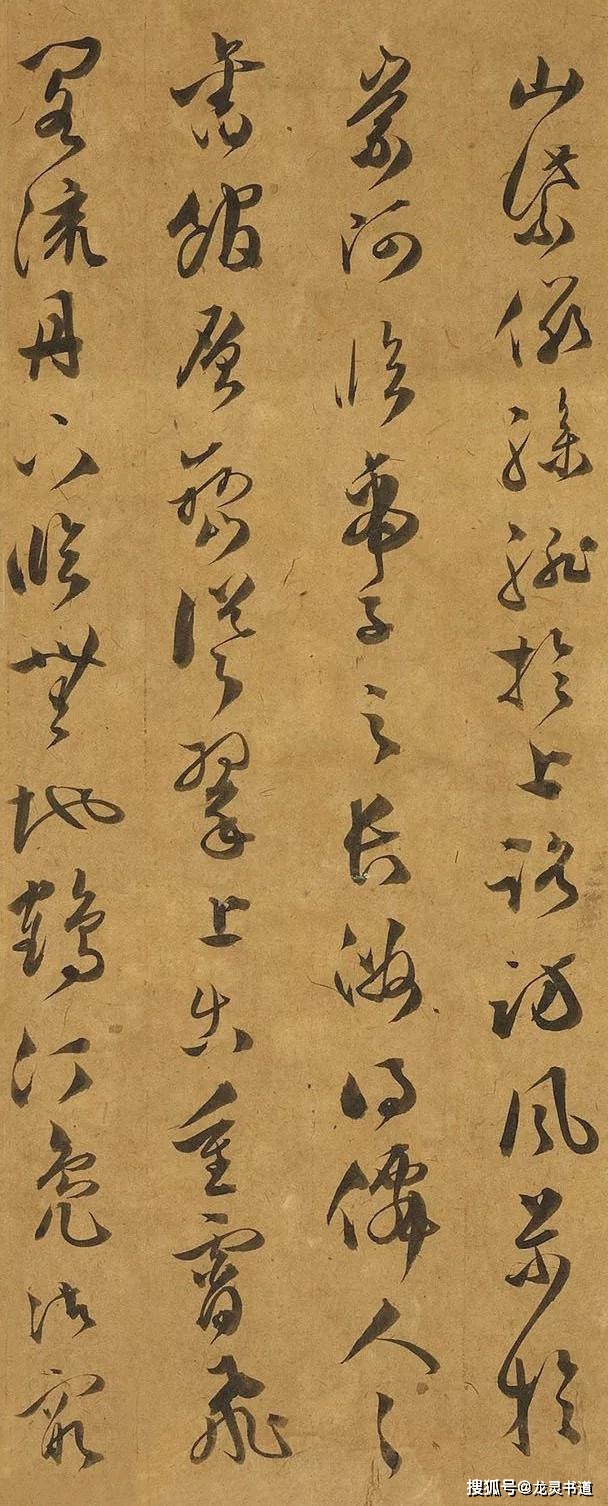 山紫儼驂騑於上路訪風景於
崇阿臨帝子之長洲得僊人之
舊館層巒聳翠上出重霄飛
閣流丹下臨無地鶴汀鳧渚窮
搜狐号@龙灵书道